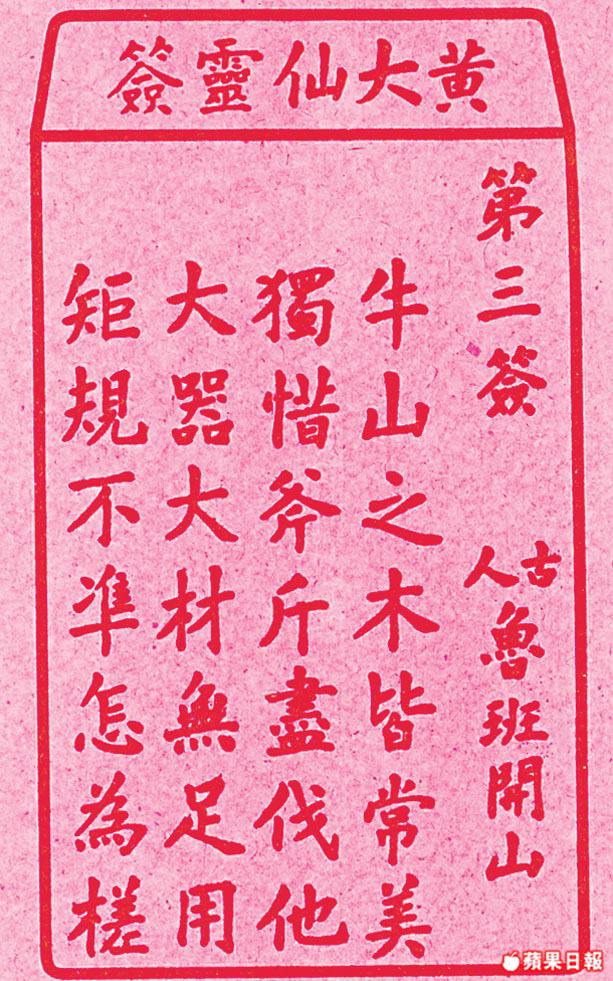 黄大仙靈簽
第三簽 古人魯班開山
牛山之木皆常美
獨惜斧斤盡伐他
大器大材無足用
矩規不準怎為槎
蘋果日報